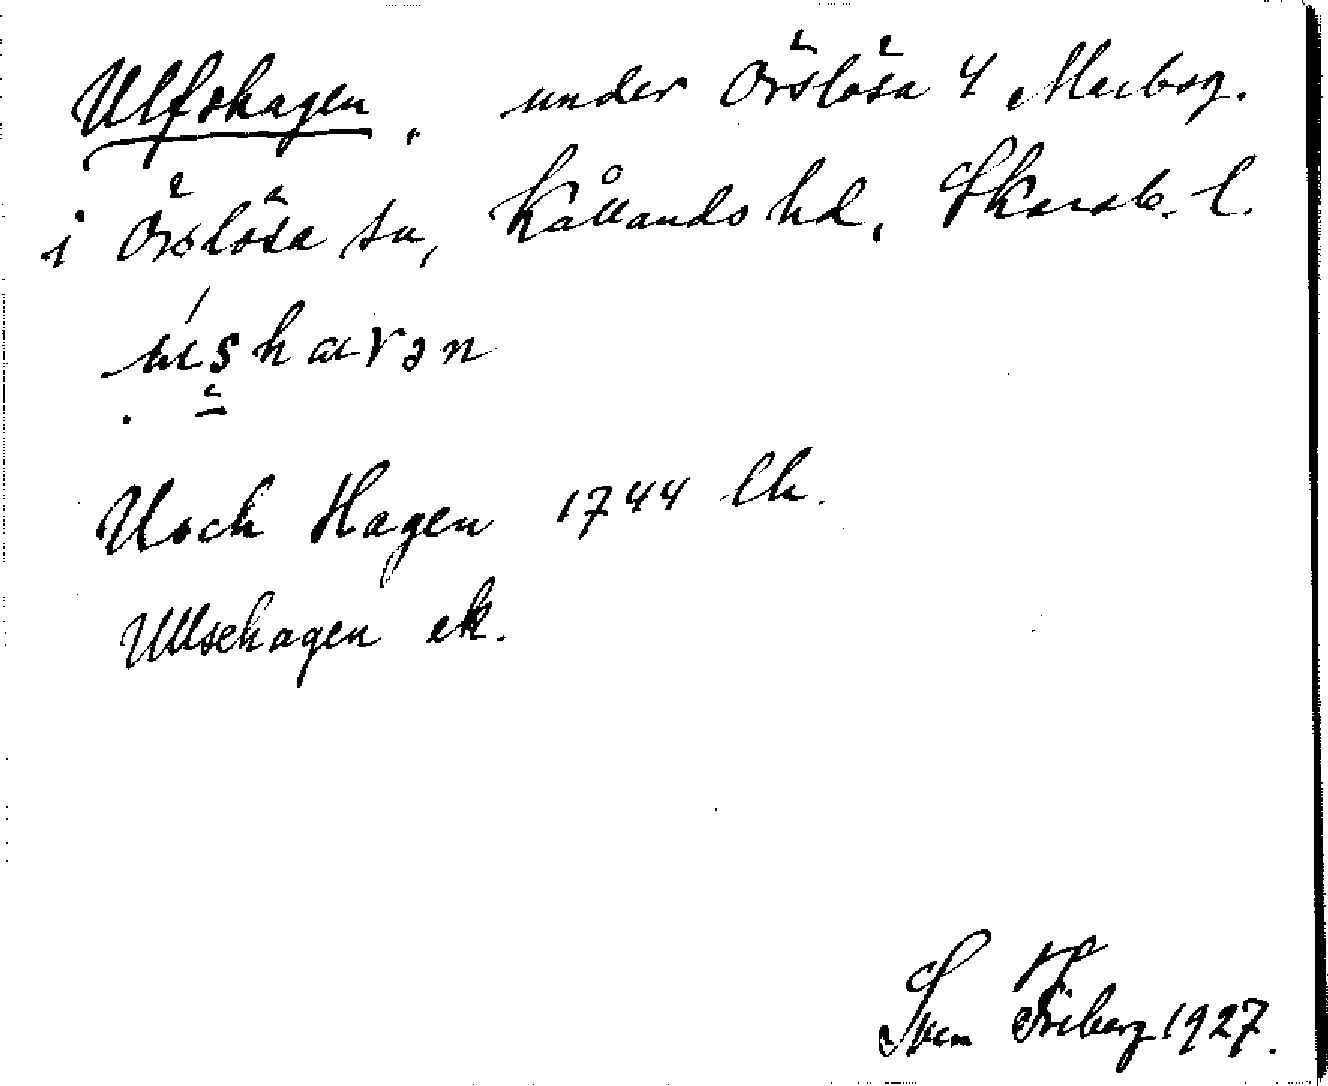 Ulfshagen, under Örslösa 4 Marbog.
i Örslösa sn, Kållands hd, Skarab. l.
Usch Hagen 1744 lk.
Ullsehagen ek.
Sven Friberg 1927.